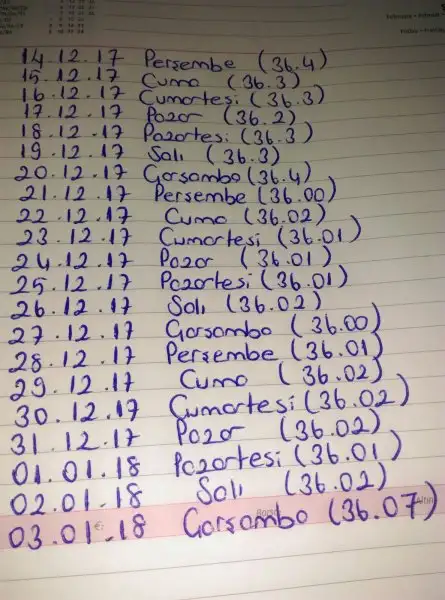 14.12.17 Persembe (36.4)
15.12.17 Cuma (36.3)
16.12.17 Cumartesi (36.3)
17.12.17 Pazar (36.2)
18.12.17 Pazartesi (36.3)
19.12.17 Salı (36.3)
20.12.17 Çarsamba (36.4)
21.12.17 Persembe (36.00)
22.12.17 Cuma (36.02)
23.12.17 Cumartesi (36.01)
24.12.17 Pazar (36.01)
25.12.17 Pazartesi (36.01)
26.12.17 Salı (36.02)
27.12.17 Çarsamba (36.00)
28.12.17 Persembe (36.01)
29.12.17 Cuma (36.02)
30.12.17 Cumartesi (36.02)
31.12.17 Pazar (36.02)
01.01.18 Pazartesi (36.01)
02.01.18 Salı (36.02)
03.01.18 Çarsamba (36.07)